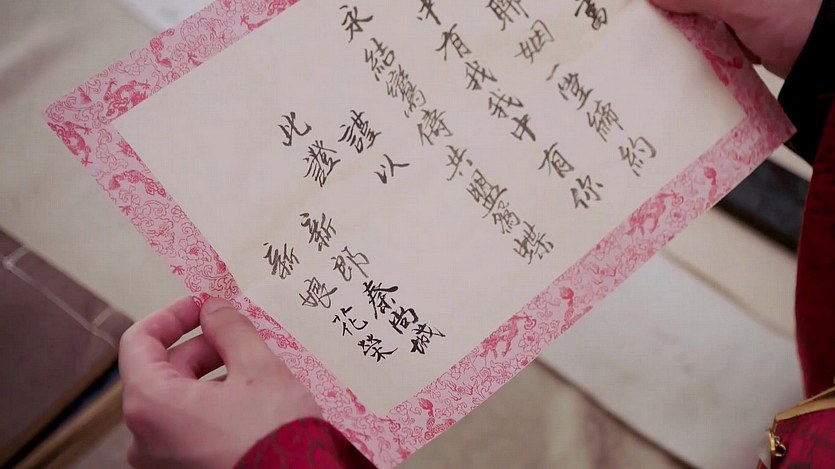 聯姻一堂締約
中有我我中有你
永結鸞儔共盟鴛蝶
謹以
此證
新郎 秦尚城
新娘 花榮